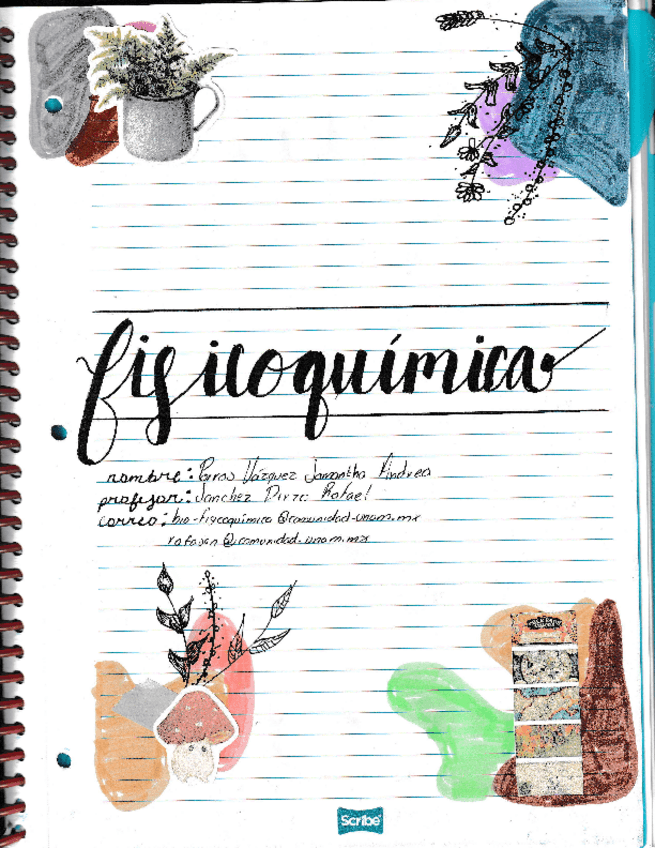 fisicoquímica
nombre: Paras Vázquez Samantha Andrea
profesor: Sanchez Dirzo Rafael
correo: bio-fisicoquimica@comunidad.unam.mx
rafasan@comunidad.unam.mx
Scribe